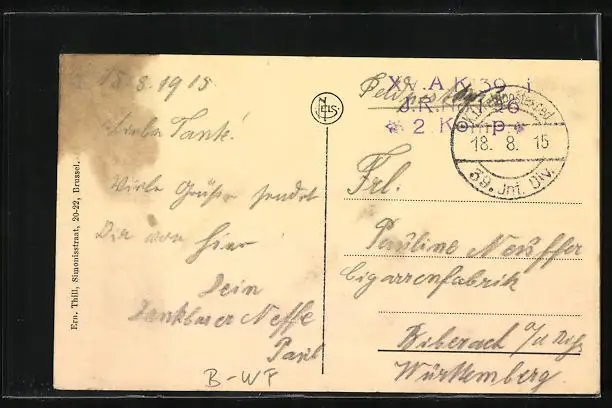 18.8.1915
Liebe Tante!
Viele Grüße sendet
Dir von hier
Dein
dankbarer Neffe
Paul
B-WF
Ern. Thill, Simonisstraat, 20-22, Brussel.
NELS
Feldpost
XV. A.K. 39
J.R. No
2. Komp.
18. 8. 15
39. Inf. Div.
Frl.
Pauline Neuffer
Cigarrenfabrik
Biberach a/d Riß
Württemberg